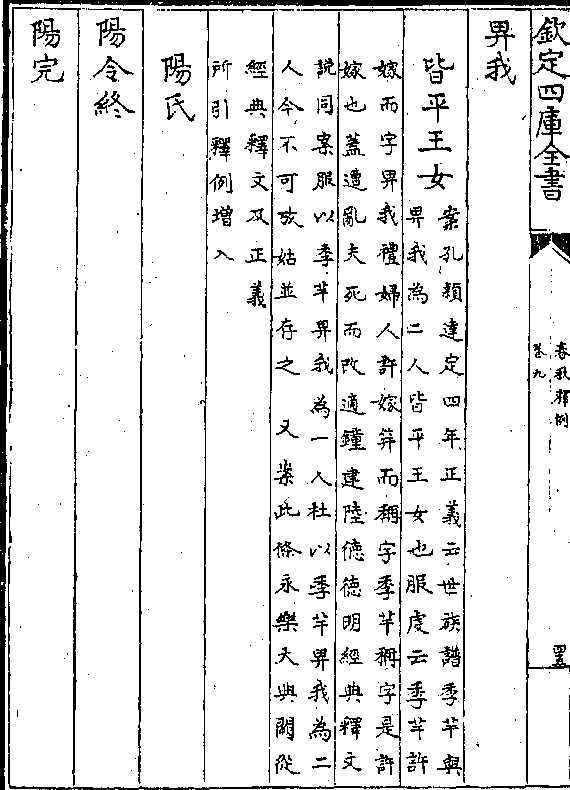 欽定四庫全書
春秋釋例
卷九
畀我
皆平王女
案孔頴達定四年正義云世族譜季芈與
畀我為二人皆平王女也服虔云季芈許
嫁而字畀我禮婦人許嫁笄而稱字季芈稱字是許
嫁也蓋遭亂夫死而改適鐘建陸德明經典釋文
説同案服以季芈畀我為一人杜以季芈畀我為二
人今不可攷姑並存之 又案此條永樂大典闕從
經典釋文及正義
所引釋例增入
陽氏
陽令終
陽完